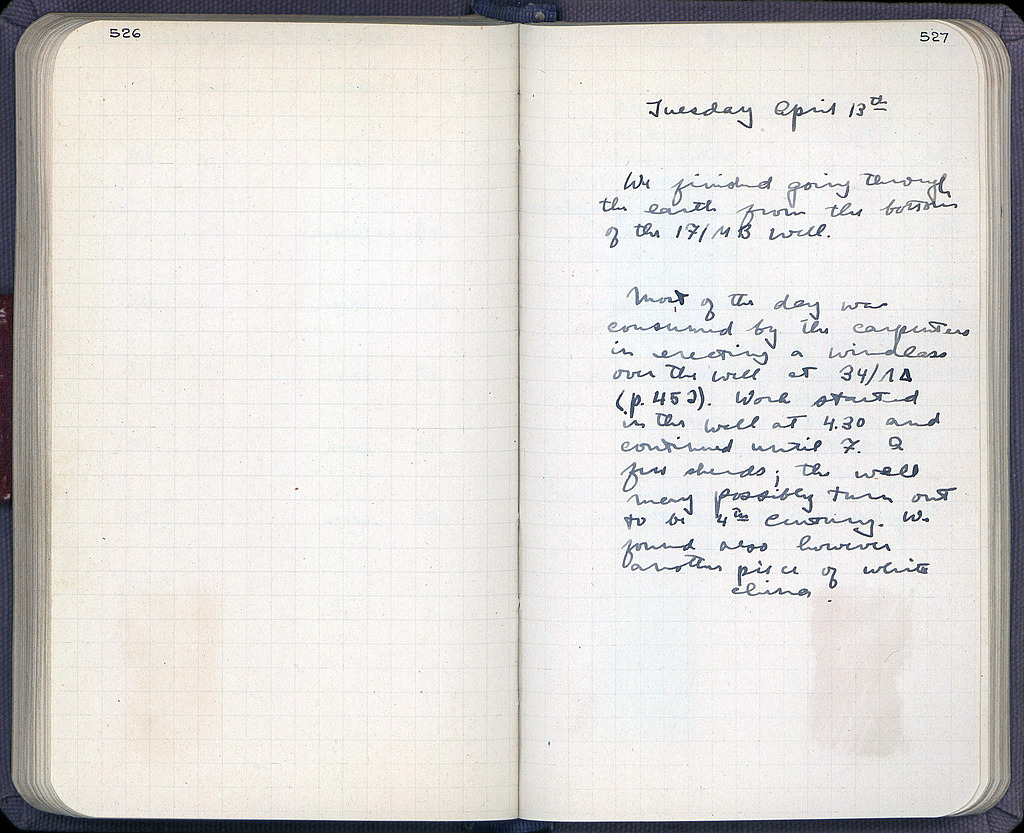 526
527
Tuesday April 13th
We finished going through
the earth from the bottom
of the 17/ΜΒ well.
Most of the day was
consumed by the carpenters
in erecting a windlass
over the well at 34/ΛΔ
(p. 453). Work started
in the well at 4.30 and
continued until 7. A
few sherds; the well
may possibly turn out
to be 4th century. We
found also however
another piece of white
china.